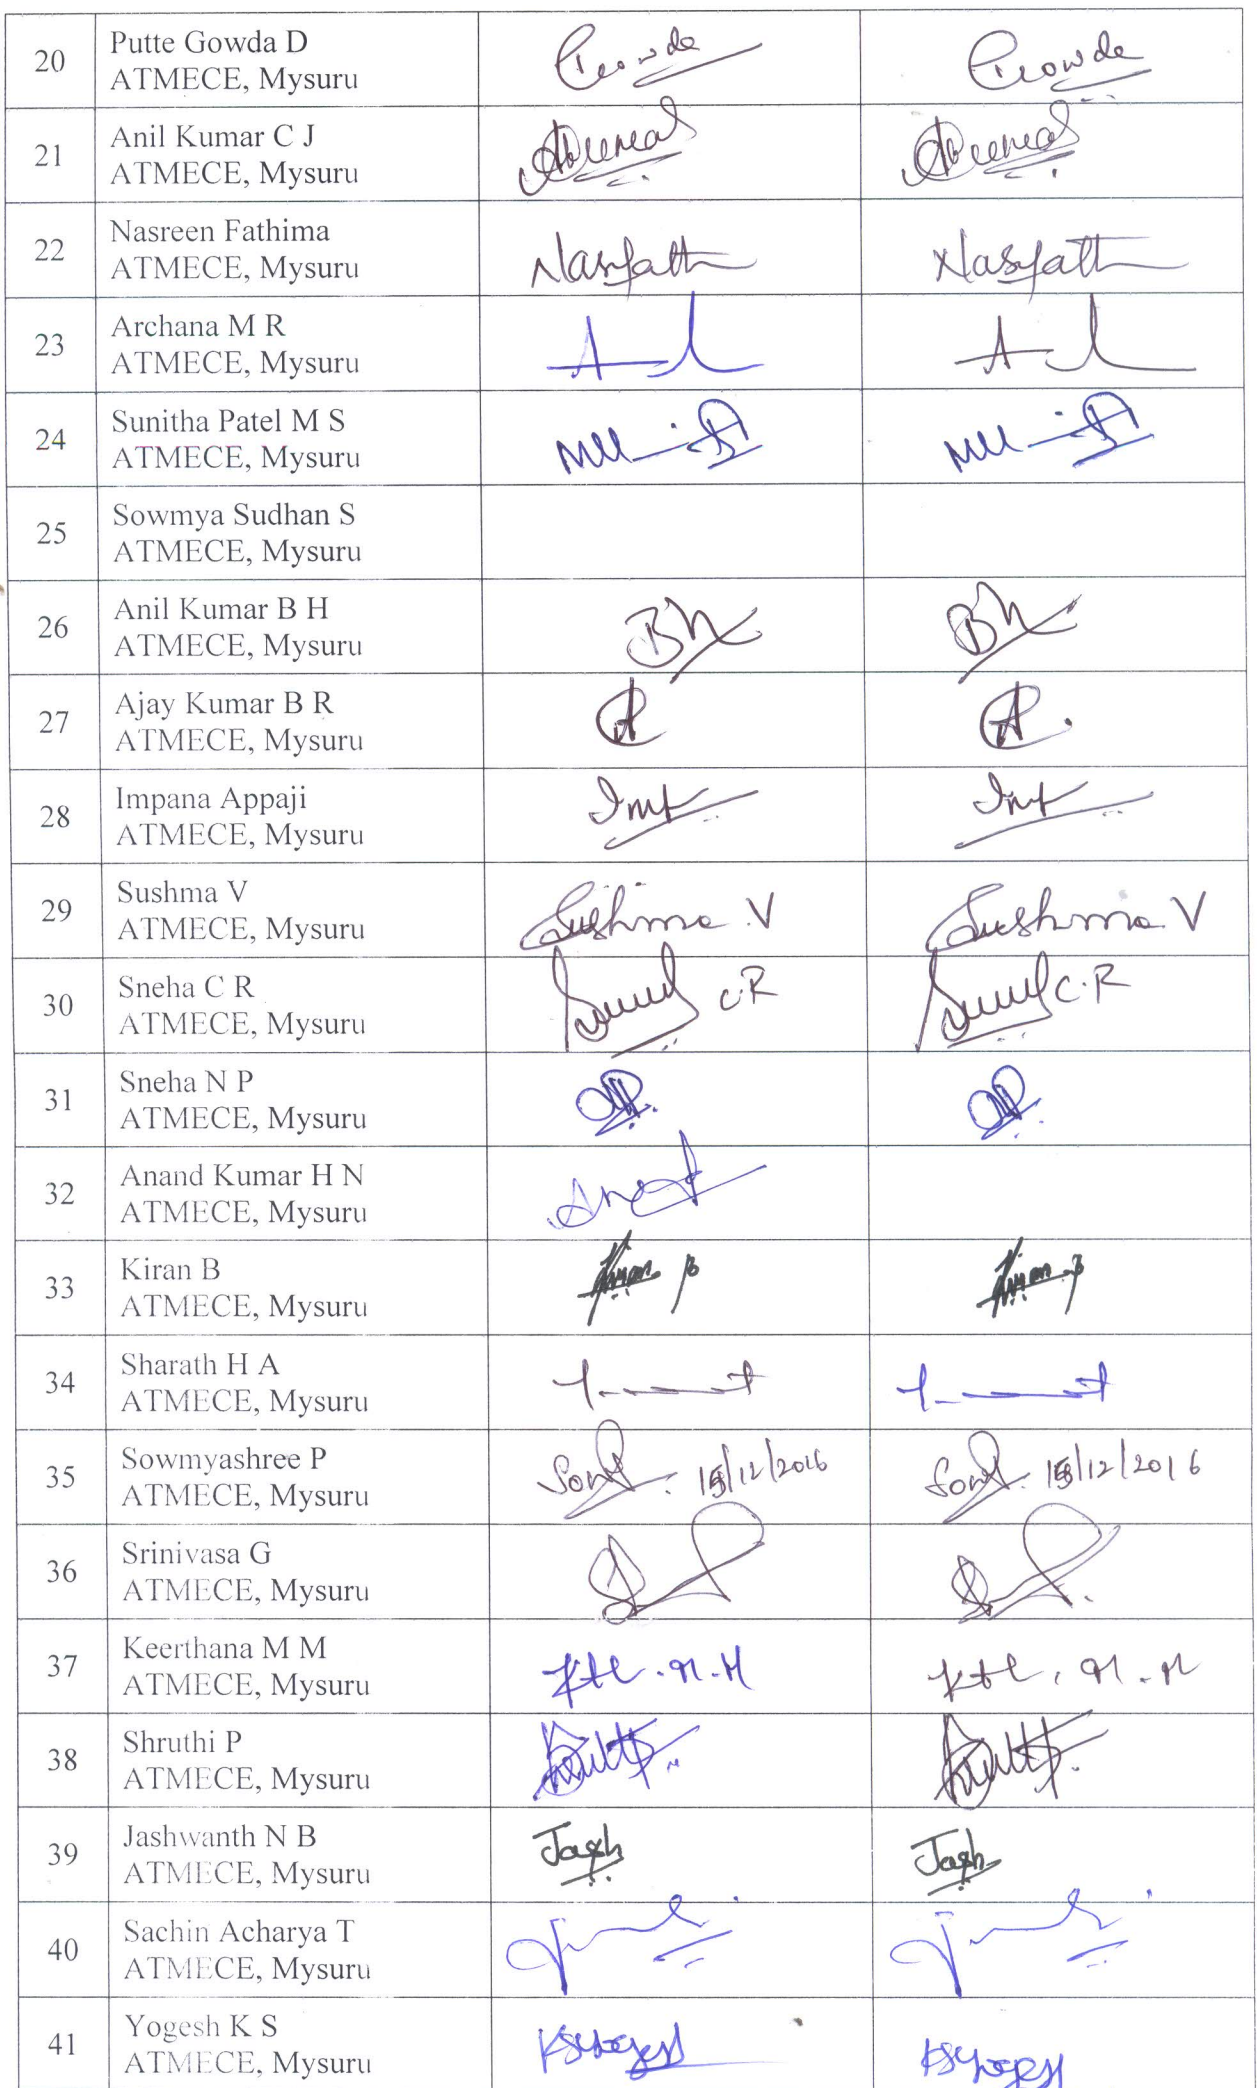 20
Putte Gowda D
ATMECE, Mysuru
Gowda
Gowda
21
Anil Kumar C J
ATMECE, Mysuru
22
Nasreen Fathima
ATMECE, Mysuru
Nasfath
Nasfath
23
Archana M R
ATMECE, Mysuru
24
Sunitha Patel M S
ATMECE, Mysuru
25
Sowmya Sudhan S
ATMECE, Mysuru
26
Anil Kumar B H
ATMECE, Mysuru
27
Ajay Kumar B R
ATMECE, Mysuru
28
Impana Appaji
ATMECE, Mysuru
29
Sushma V
ATMECE, Mysuru
Sushma V
Sushma V
30
Sneha C R
ATMECE, Mysuru
C.R
C.R
31
Sneha N P
ATMECE, Mysuru
32
Anand Kumar H N
ATMECE, Mysuru
33
Kiran B
ATMECE, Mysuru
Kiran B
Kiran B
34
Sharath H A
ATMECE, Mysuru
35
Sowmyashree P
ATMECE, Mysuru
15/12/2016
15/12/2016
36
Srinivasa G
ATMECE, Mysuru
37
Keerthana M M
ATMECE, Mysuru
38
Shruthi P
ATMECE, Mysuru
39
Jashwanth N B
ATMECE, Mysuru
Jash
Jash
40
Sachin Acharya T
ATMECE, Mysuru
41
Yogesh K S
ATMECE, Mysuru
KSYogesh
KSYogesh